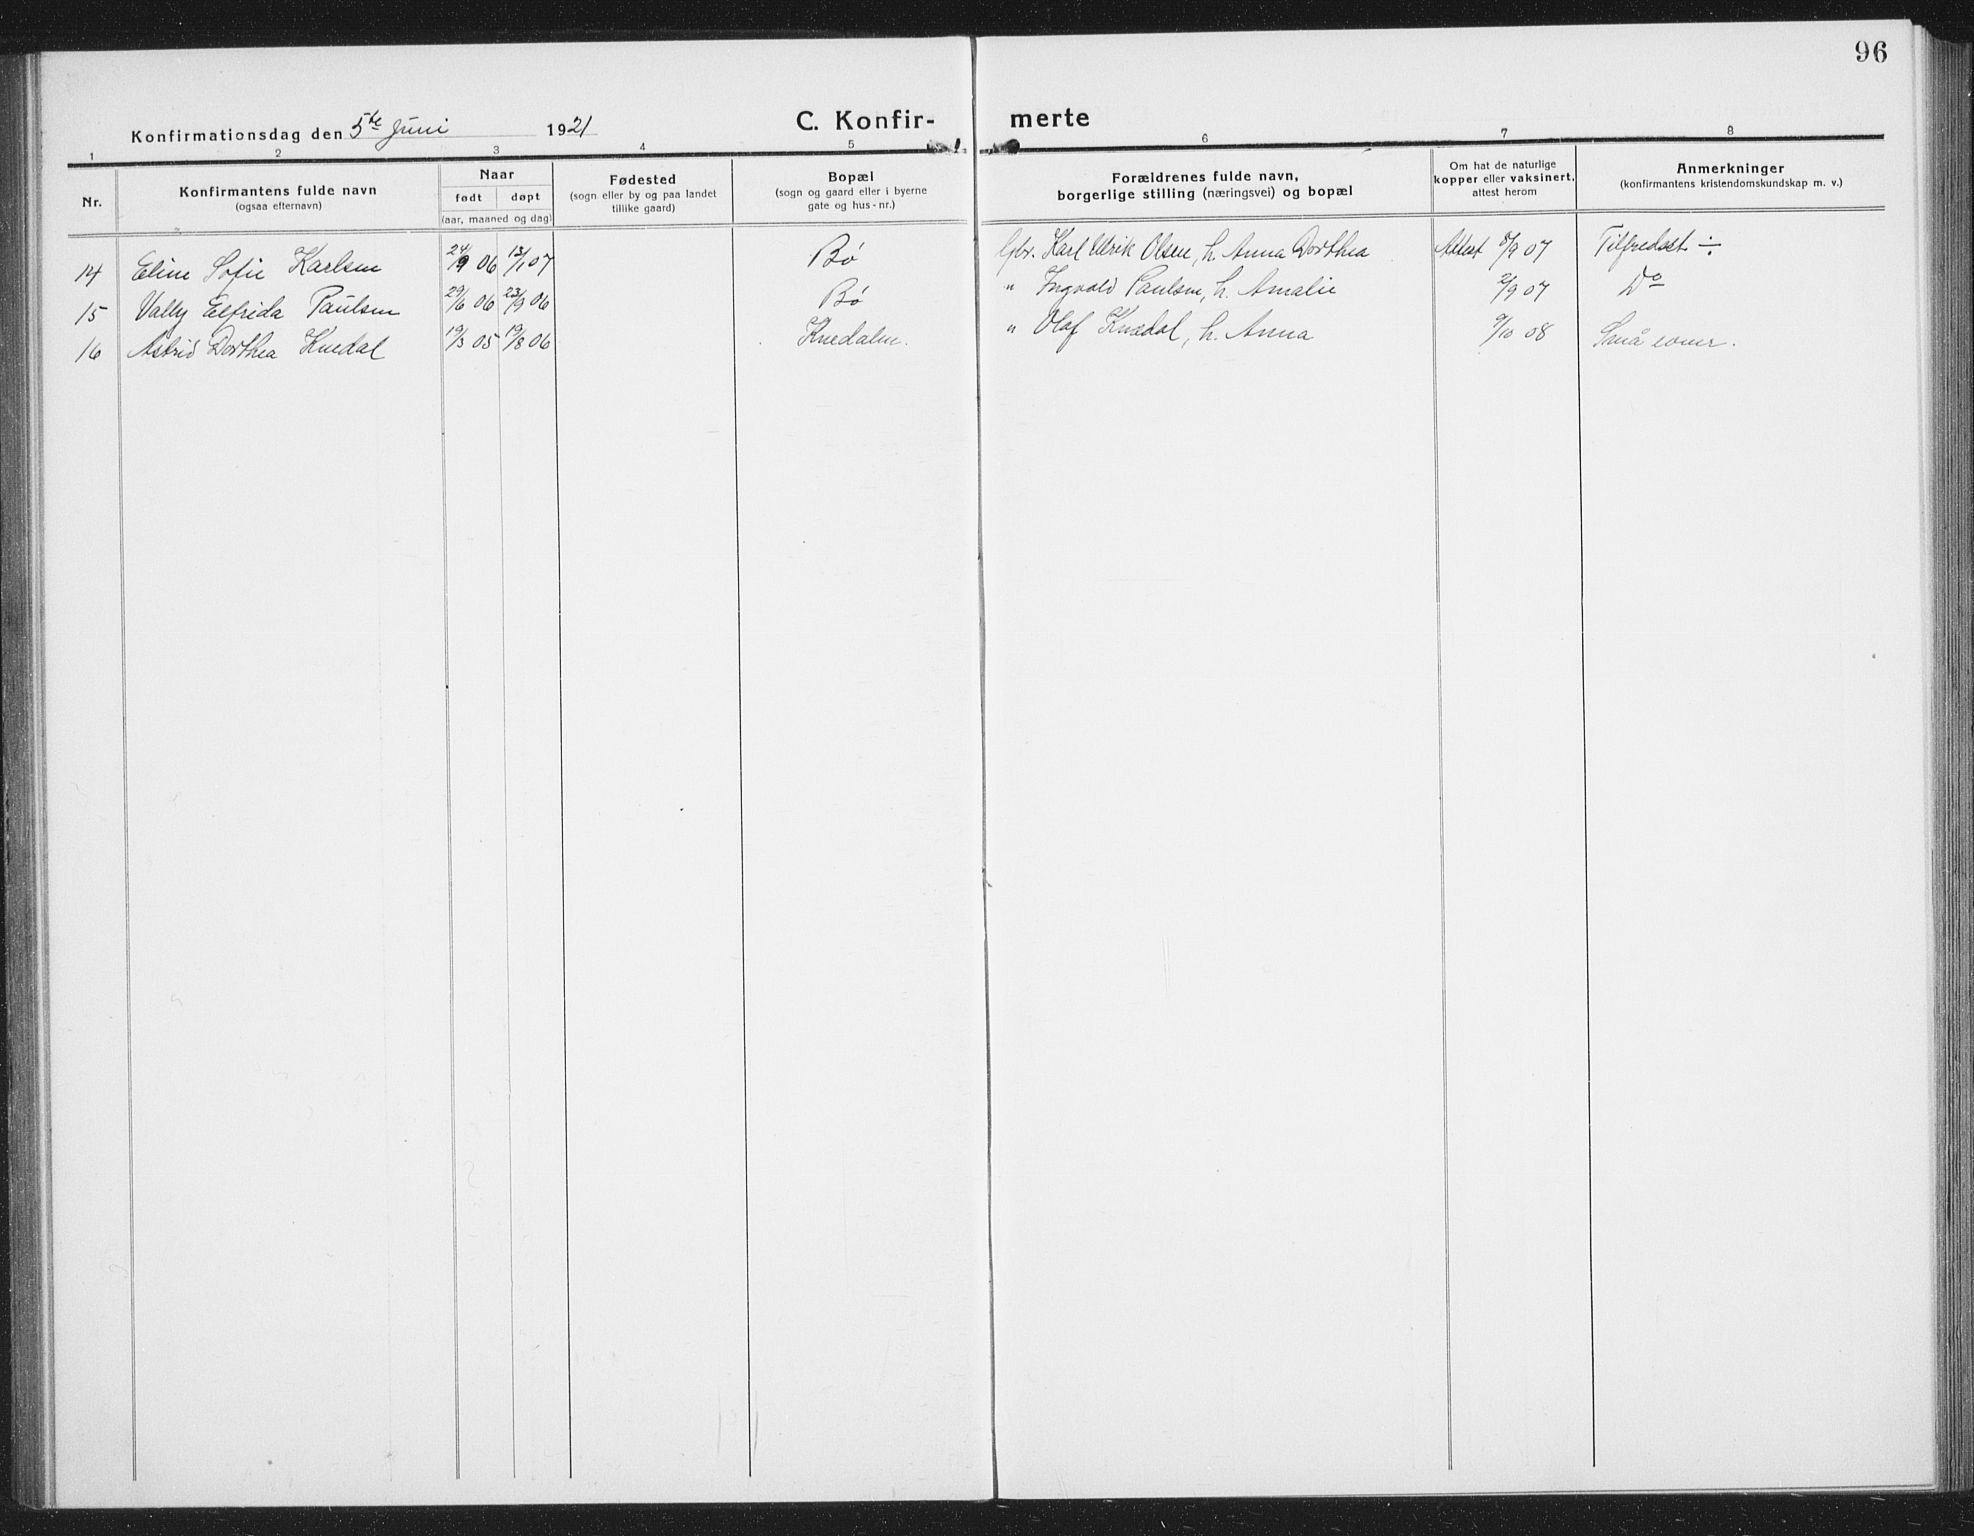 96
Konfirmationsdag den 5te Juni 1921
C. Konfir-merte
1 2 3 4 5 6 7 8
Nr.
Konfirmantens fulde navn
(ogsaa efternavn)
Naar
født døpt
(aar, maaned og dag)
Fødested
(sogn eller by og paa landet
tillike gaard)
Bopæl
(sogn og gaard eller i byerne
gate og hus-nr.)
Forældrenes fulde navn,
borgerlige stilling (næringsvei) og bopæl
Om hat de naturlige
kopper eller vaksinert,
attest herom
Anmerkninger
(konfirmantens kristendomskundskap m. v.)
14 Eline Sofie Karlsen 24/9 06 13/1 07 Bø Gbr. Karl Ulrik Olsen, h. Anna Dorthea Attest 8/9 07 Tilfredsst ÷
15 Vally Elfrida Paulsen 29/6 06 23/9 06 Bø " Ingvald Paulsen, h. Amalie 2/9 07 Do
16 Astrid Dorthea Knedal 19/3 05 19/8 06 Knedalen. " Olaf Knædal, h. Anna 9/10 08 Små